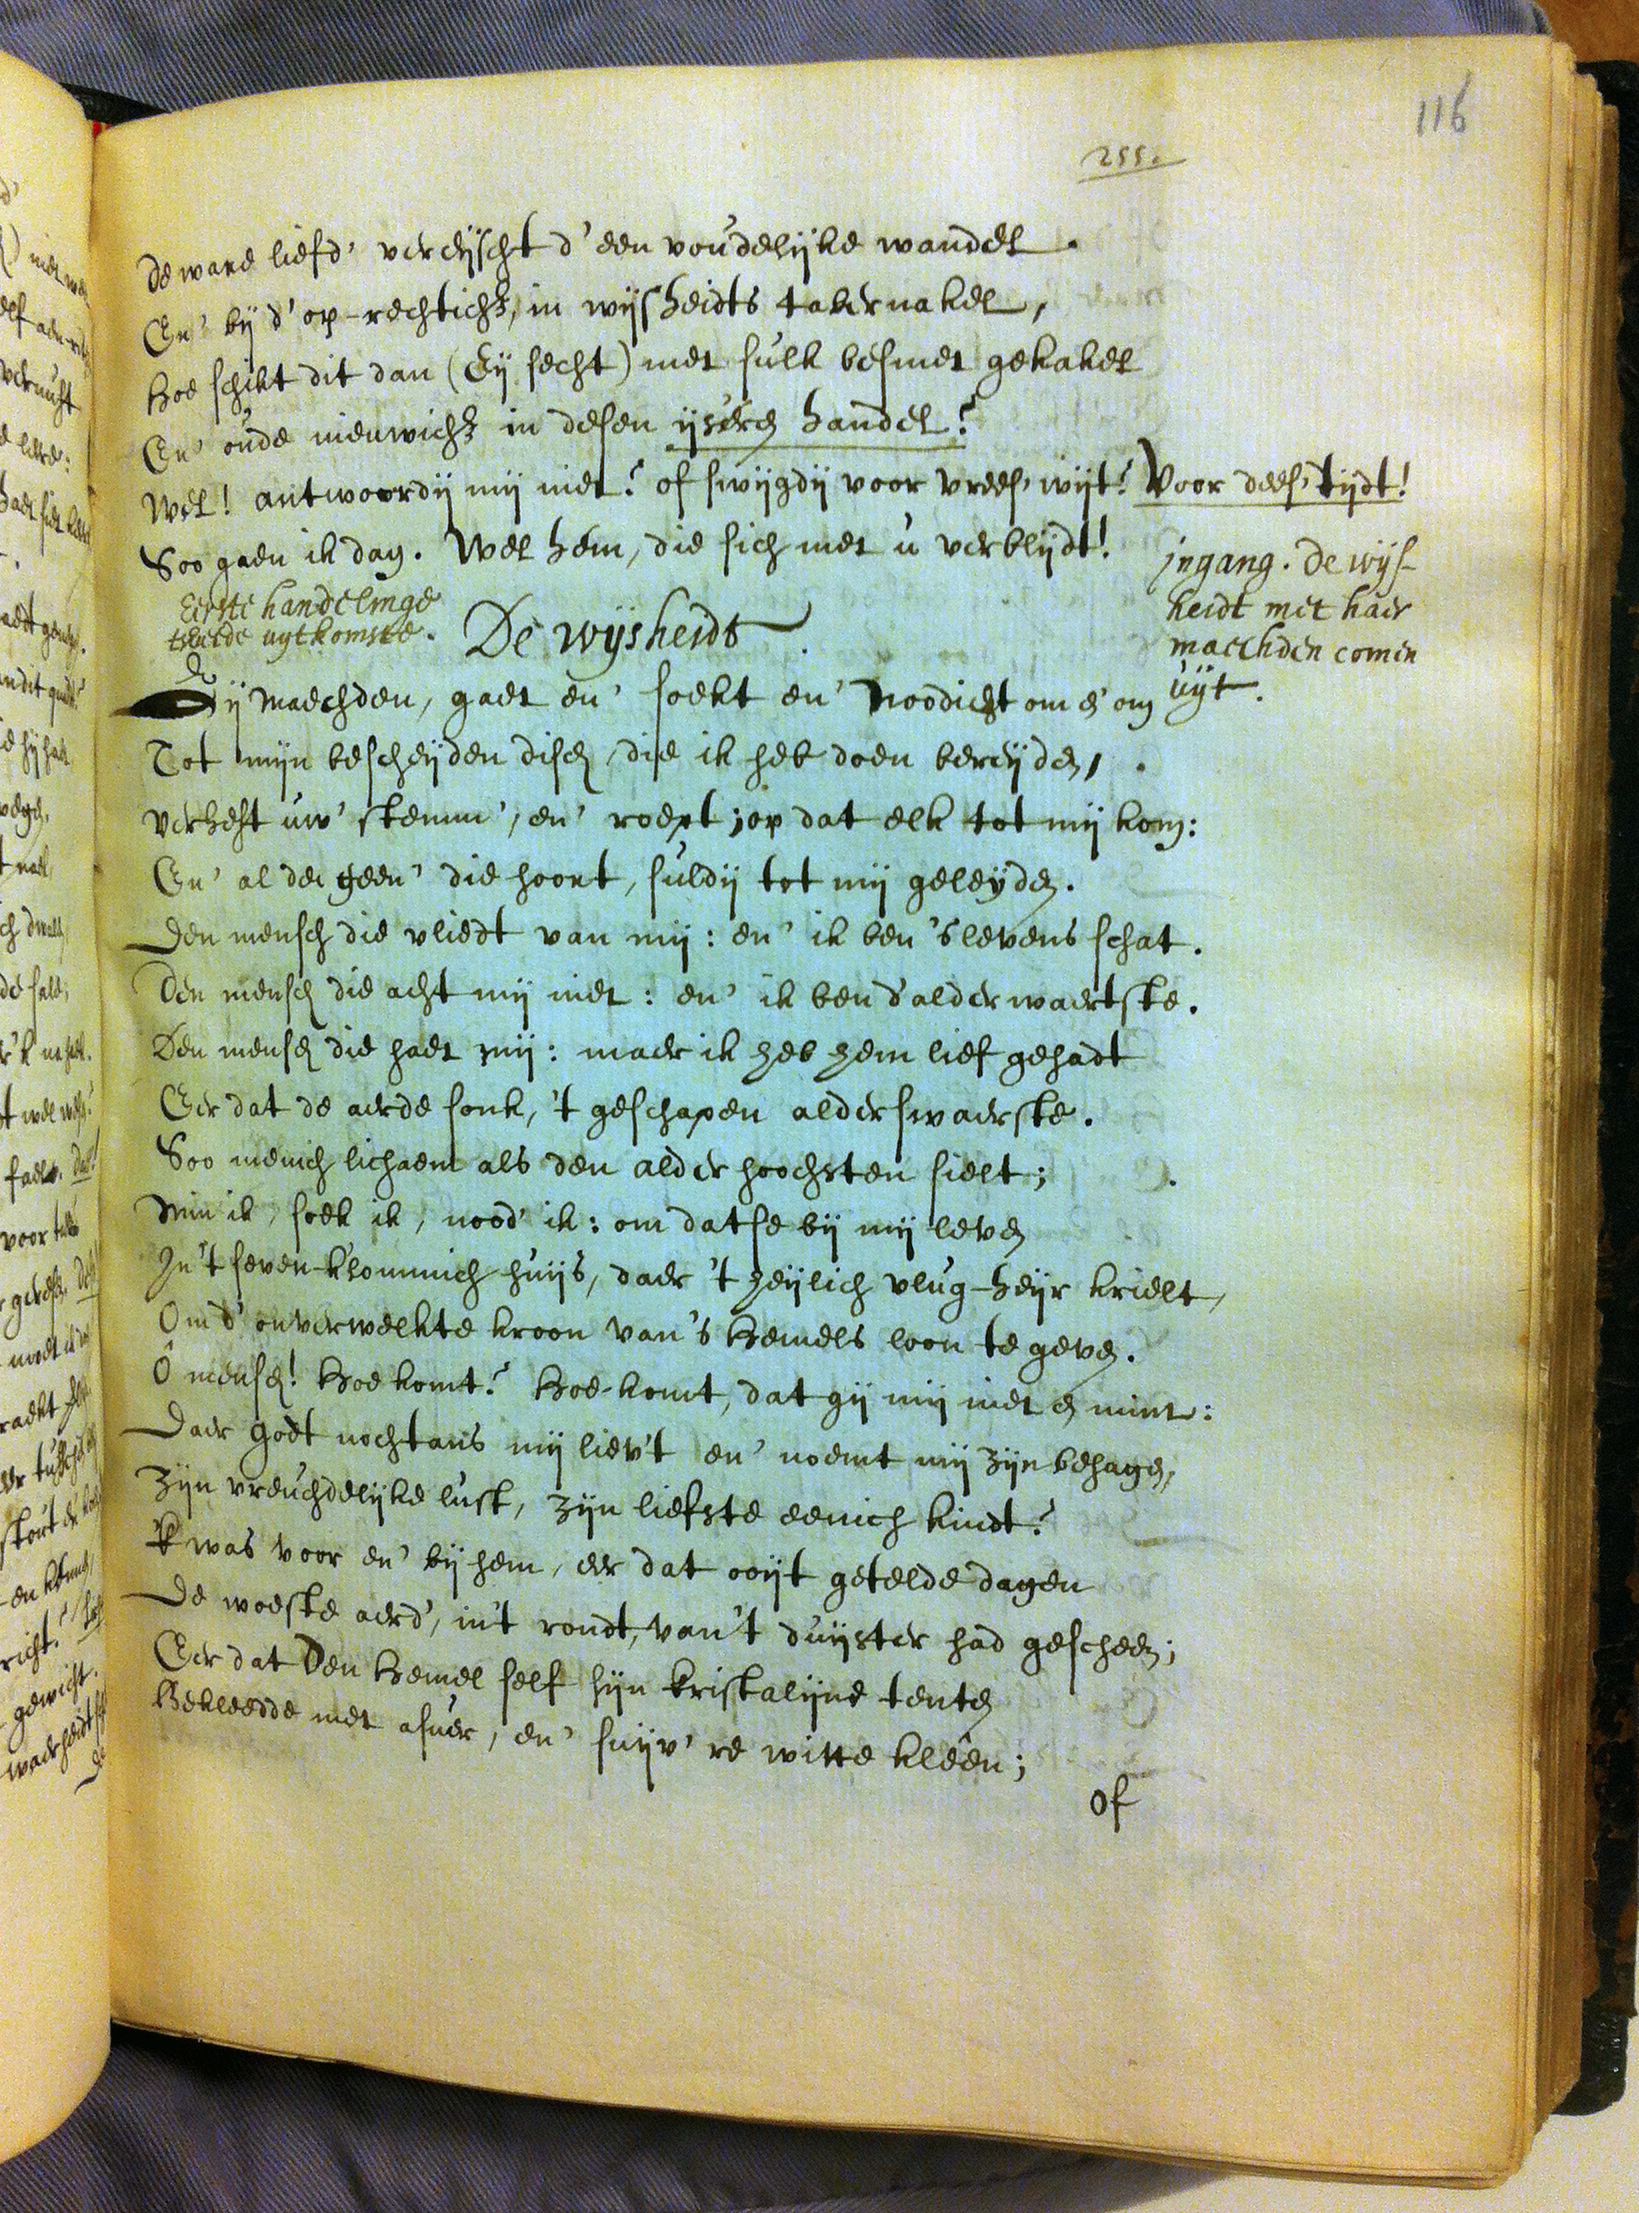 116
255.
De ware liefd' vereijscht d'een voudelijke wandel.
En' bij d'op-rechticht, in wijsheidts tabernakel,
Hoe schikt dit dan (Eij secht) met sulk besmet gekakel
En' oude nieuwicht in desen ijseren handel?
Wel! antwoordij mij niet? of swijgdij voor vrees, wijt? Voor dees' tijdt!
Soo gaen ik dan. Wel hem, die sich met u verblijdt!
Ingang. De wijs-
heidt met haer
maechden comen
uijt.
Eerste handelinge
tweede uytkomste.
De wijsheidt.
Gij Maechden, gaet en' soekt en' Noodicht om en' om
Tot mijn bescheijden disch, die ik heb doen bereijden,
verheft uw' stemm', en' roept; op dat elk tot mij kom:
En' al de geen' die hoort, suldij tot mij geleyden.
Den mensch die vliedt van mij: en' ik ben 's levens schat.
Den mensch die acht mij niet: en' ik ben d'alderwaertste.
Den mensch die haet mij: maer ik heb hem lief gehadt
Eer dat de aerde sonk, 't geschapen alderswaerste.
Soo menich lichaem als den alder hoochsten sielt;
Min ik, soek ik, nood' ik: om datse bij mij leven
In 't seven-k'lommich huijs, daer 't heijlich vlug-heijr krielt,
Om d'onverwelkte kroon van 's Hemels loon te geven.
Ô mensch! Hoe komt? Hoe-komt, dat gij mij niet en mint:
Daer godt nochtans mij liev't en' noemt mij zijn behagen,
Zijn vreuchdelijke lust, zijn liefste eenich kindt?
'K was voor en' bij hem, eer dat ooijt getelde dagen
De woeste aerd', in't rondt, van't duijster had gescheen;
Eer dat Den Hemel self sijn kristalijne tenten
Bekleedde met asuer, en' suijv're witte kleên;
Of